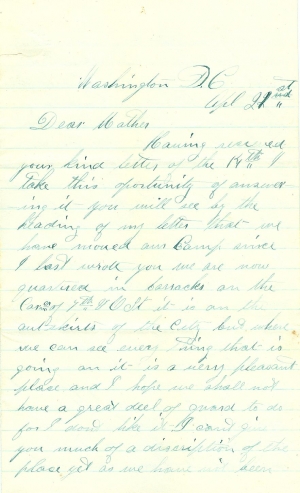 Washington D.C.
Apl 2
Dear Mother
Having received
your kind letter of the 19th I
take this oportunity of answer
ing it you will see by the
heading of my letter that we
have moved our Camp since
I last wrote you we are now
quartered in barracks on the
Cor of 7th & O St it is on the
outskirts of the City but where
we can see every thing that is
going on it is a very pleasant
place and I hope we shall not
have a great deel of guard to do
for I dont like it I cant give
you much of a discription of the
place yet as we have not been